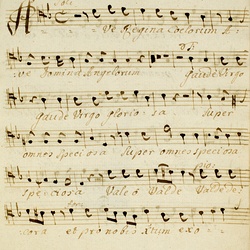 Ave Regina Coelorum A
ve Domina Angelorum Gaude Virgo
gaude Virgo glorio sa Super
omnes speciosa Super omnes speciosa
speciosa Vale o Valde Valde de
cora et pro nobis Xtum exo